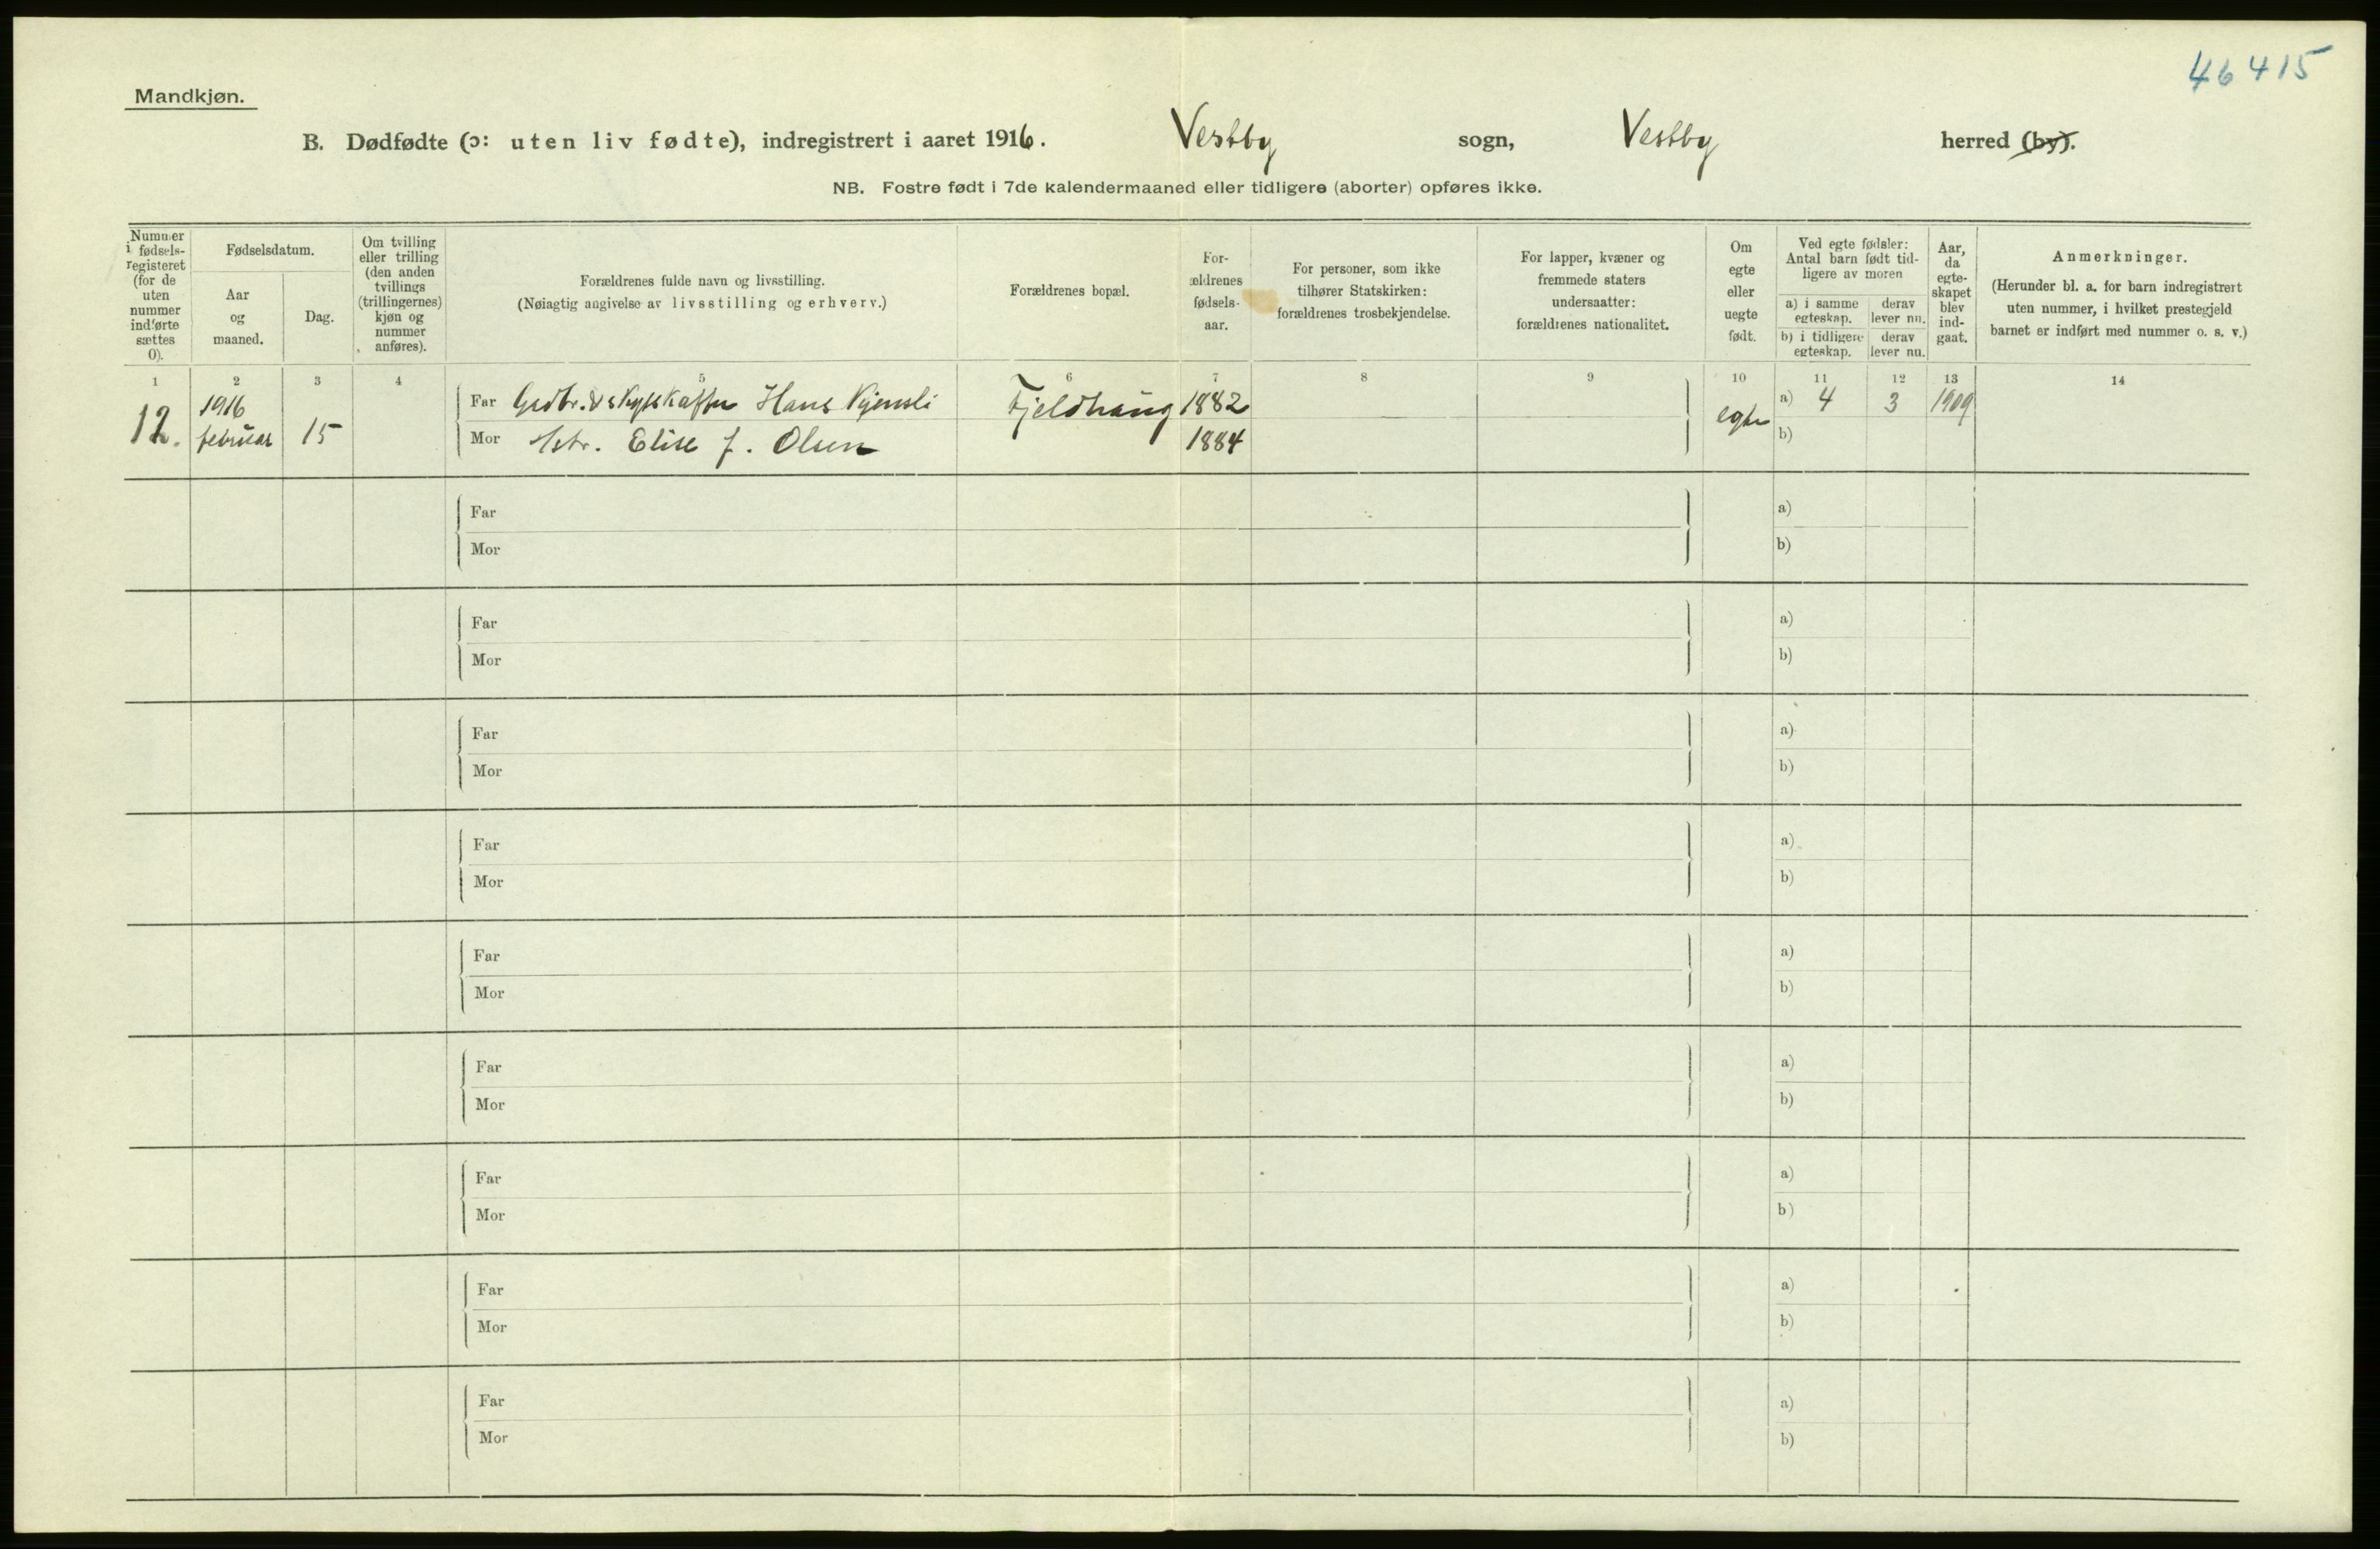 46 415
Mandkjøn.
B. Dødfødte (ɔ: uten liv fødte), indregistrert i aaret 1916. Vestby sogn, Vestby herred (by).
NB. Fostre født i 7de kalendermaaned eller tidligere (aborter) opføres ikke.
Nummer i fødsels-registeret (for de uten nummer indførte sættes 0).
Fødselsdatum.
Aar og maaned.
Dag.
Om tvilling eller trilling (den anden tvillings (trillingernes) kjøn og nummer anføres).
Forældrenes fulde navn og livsstilling.
(Nøiagtig angivelse av livsstilling og erhverv.)
Forældrenes bopæl.
For-ældrenes fødsels-aar.
For personer, som ikke tilhører Statskirken: forældrenes trosbekjendelse.
For lapper, kvæner og fremmede staters undersaatter: forældrenes nationalitet.
Om egte eller uegte født.
Ved egte fødsler: Antal barn født tid-ligere av moren
a) i samme egteskap. derav lever nu.
b) i tidligere egteskap. derav lever nu.
Aar, da egte-skapet blev ind-gaat.
Anmerkninger.
(Herunder bl. a. for barn indregistrert uten nummer, i hvilket prestegjeld barnet er indført med nummer o. s. v.)
1 2 3 4 5 6 7 8 9 10 11 12 13 14
12. 1916 februar 15 Far Gadbr. & skyss Hans Kjensli Fjeldhaug 1882 egte a) 4 3 1909
Mor Hstr. Elise J. Olsen 1884 b)
Far a)
Mor b)
Far a)
Mor b)
Far a)
Mor b)
Far a)
Mor b)
Far a)
Mor b)
Far a)
Mor b)
Far a)
Mor b)
Far a)
Mor b)
Far a)
Mor b)